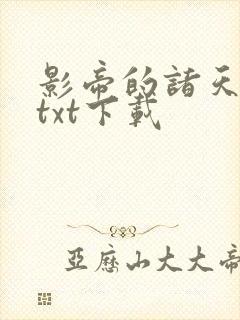 影帝的諸天
txt下載
亞歷山大大帝